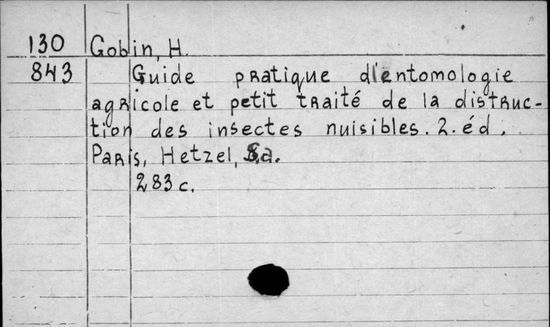 130 Gobin, H.
843 Guide pratique d'entomologie
agricole et petit traité de la distruc-
tion des insectes nuisibles. 2. éd.
Paris, Hetzel, S.a.
283 c.